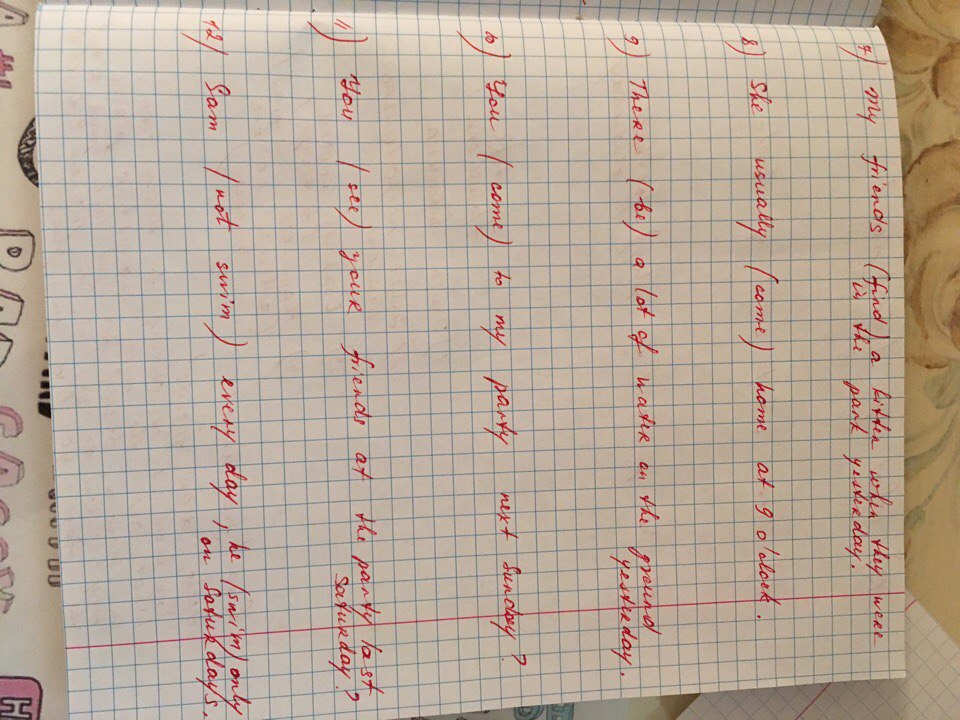 7) My friends (find) a kitten when they were
in the park yesterday.
8) She usually (come) home at 9 o'clock.
9) There (be) a lot of water on the ground
yesterday.
10) You (come) to my party next Sunday?
11) You (see) your friends at the party last
Saturday?
12) Sam (not swim) every day, he (swim) only
on Saturdays.